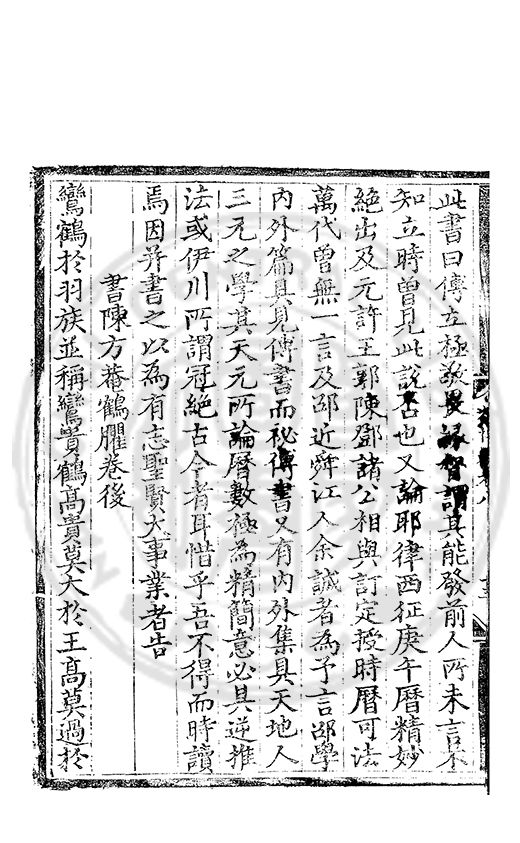 此書曰傳立極敬畏謂其能發前人所未言未
知立時曾見此說否也又論耶律西征庚午曆精妙
絕出及元許王郭陳鄧諸公相與訂定授時曆可法
萬代曾無一言及邵近舜江人余誠者為予言邵學
內外篇具見傳書而秘傳書又有內外集具天地人
三元之學其天元所論曆數極為精簡意必具逆推
法或伊川所謂冠絕古今者耳惜乎吾不得而時讀
焉因并書之以為有志聖賢大事業者告
書陳方菴鶴臞卷後
鸞鶴於羽族並稱鸞貴鶴高貴莫大於王高莫過於